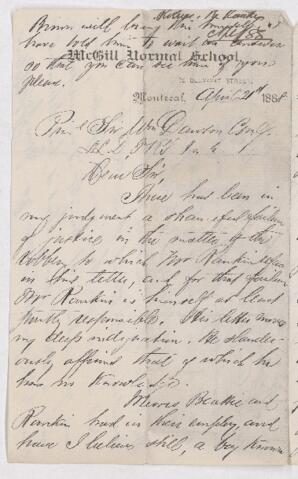 Brown will bring this himself. I
have told him to wait
so that you can see him if you
please.
McGill Normal School,
32 BELMONT STREET,
Montreal, April 21st 1888
Sir Wm Dawson
LL.D. F.R.S.
Dear Sir,
There has been in
my judgment a failure
of justice in the matter of the
robbery to which Mr Rankin refers
in his letter, and for that failure
Mr Rankin is himself at least
partly responsible. His letter moves
my deep indignation. He slander-
ously affirms that of which he
has no knowledge.
Messrs Beattie and
Rankin had in their employ, and
have I believe still, a boy known